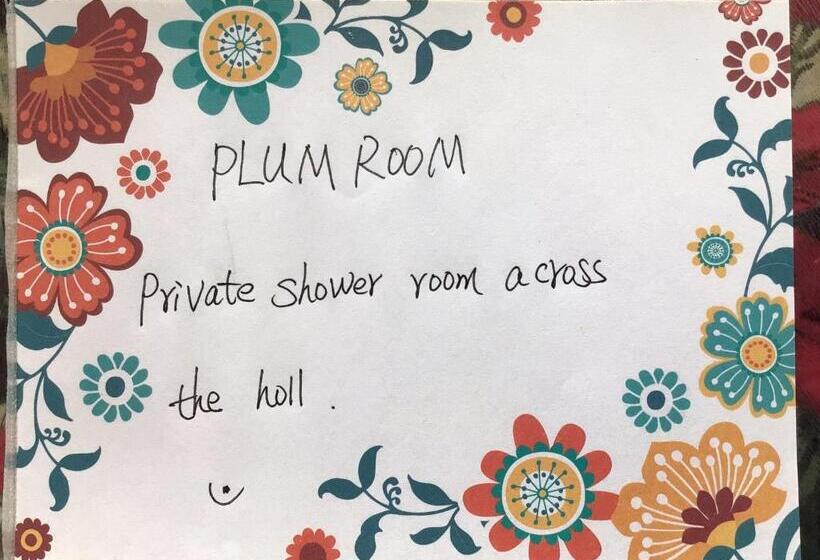 PLUM ROOM
Private shower room across
the holl .